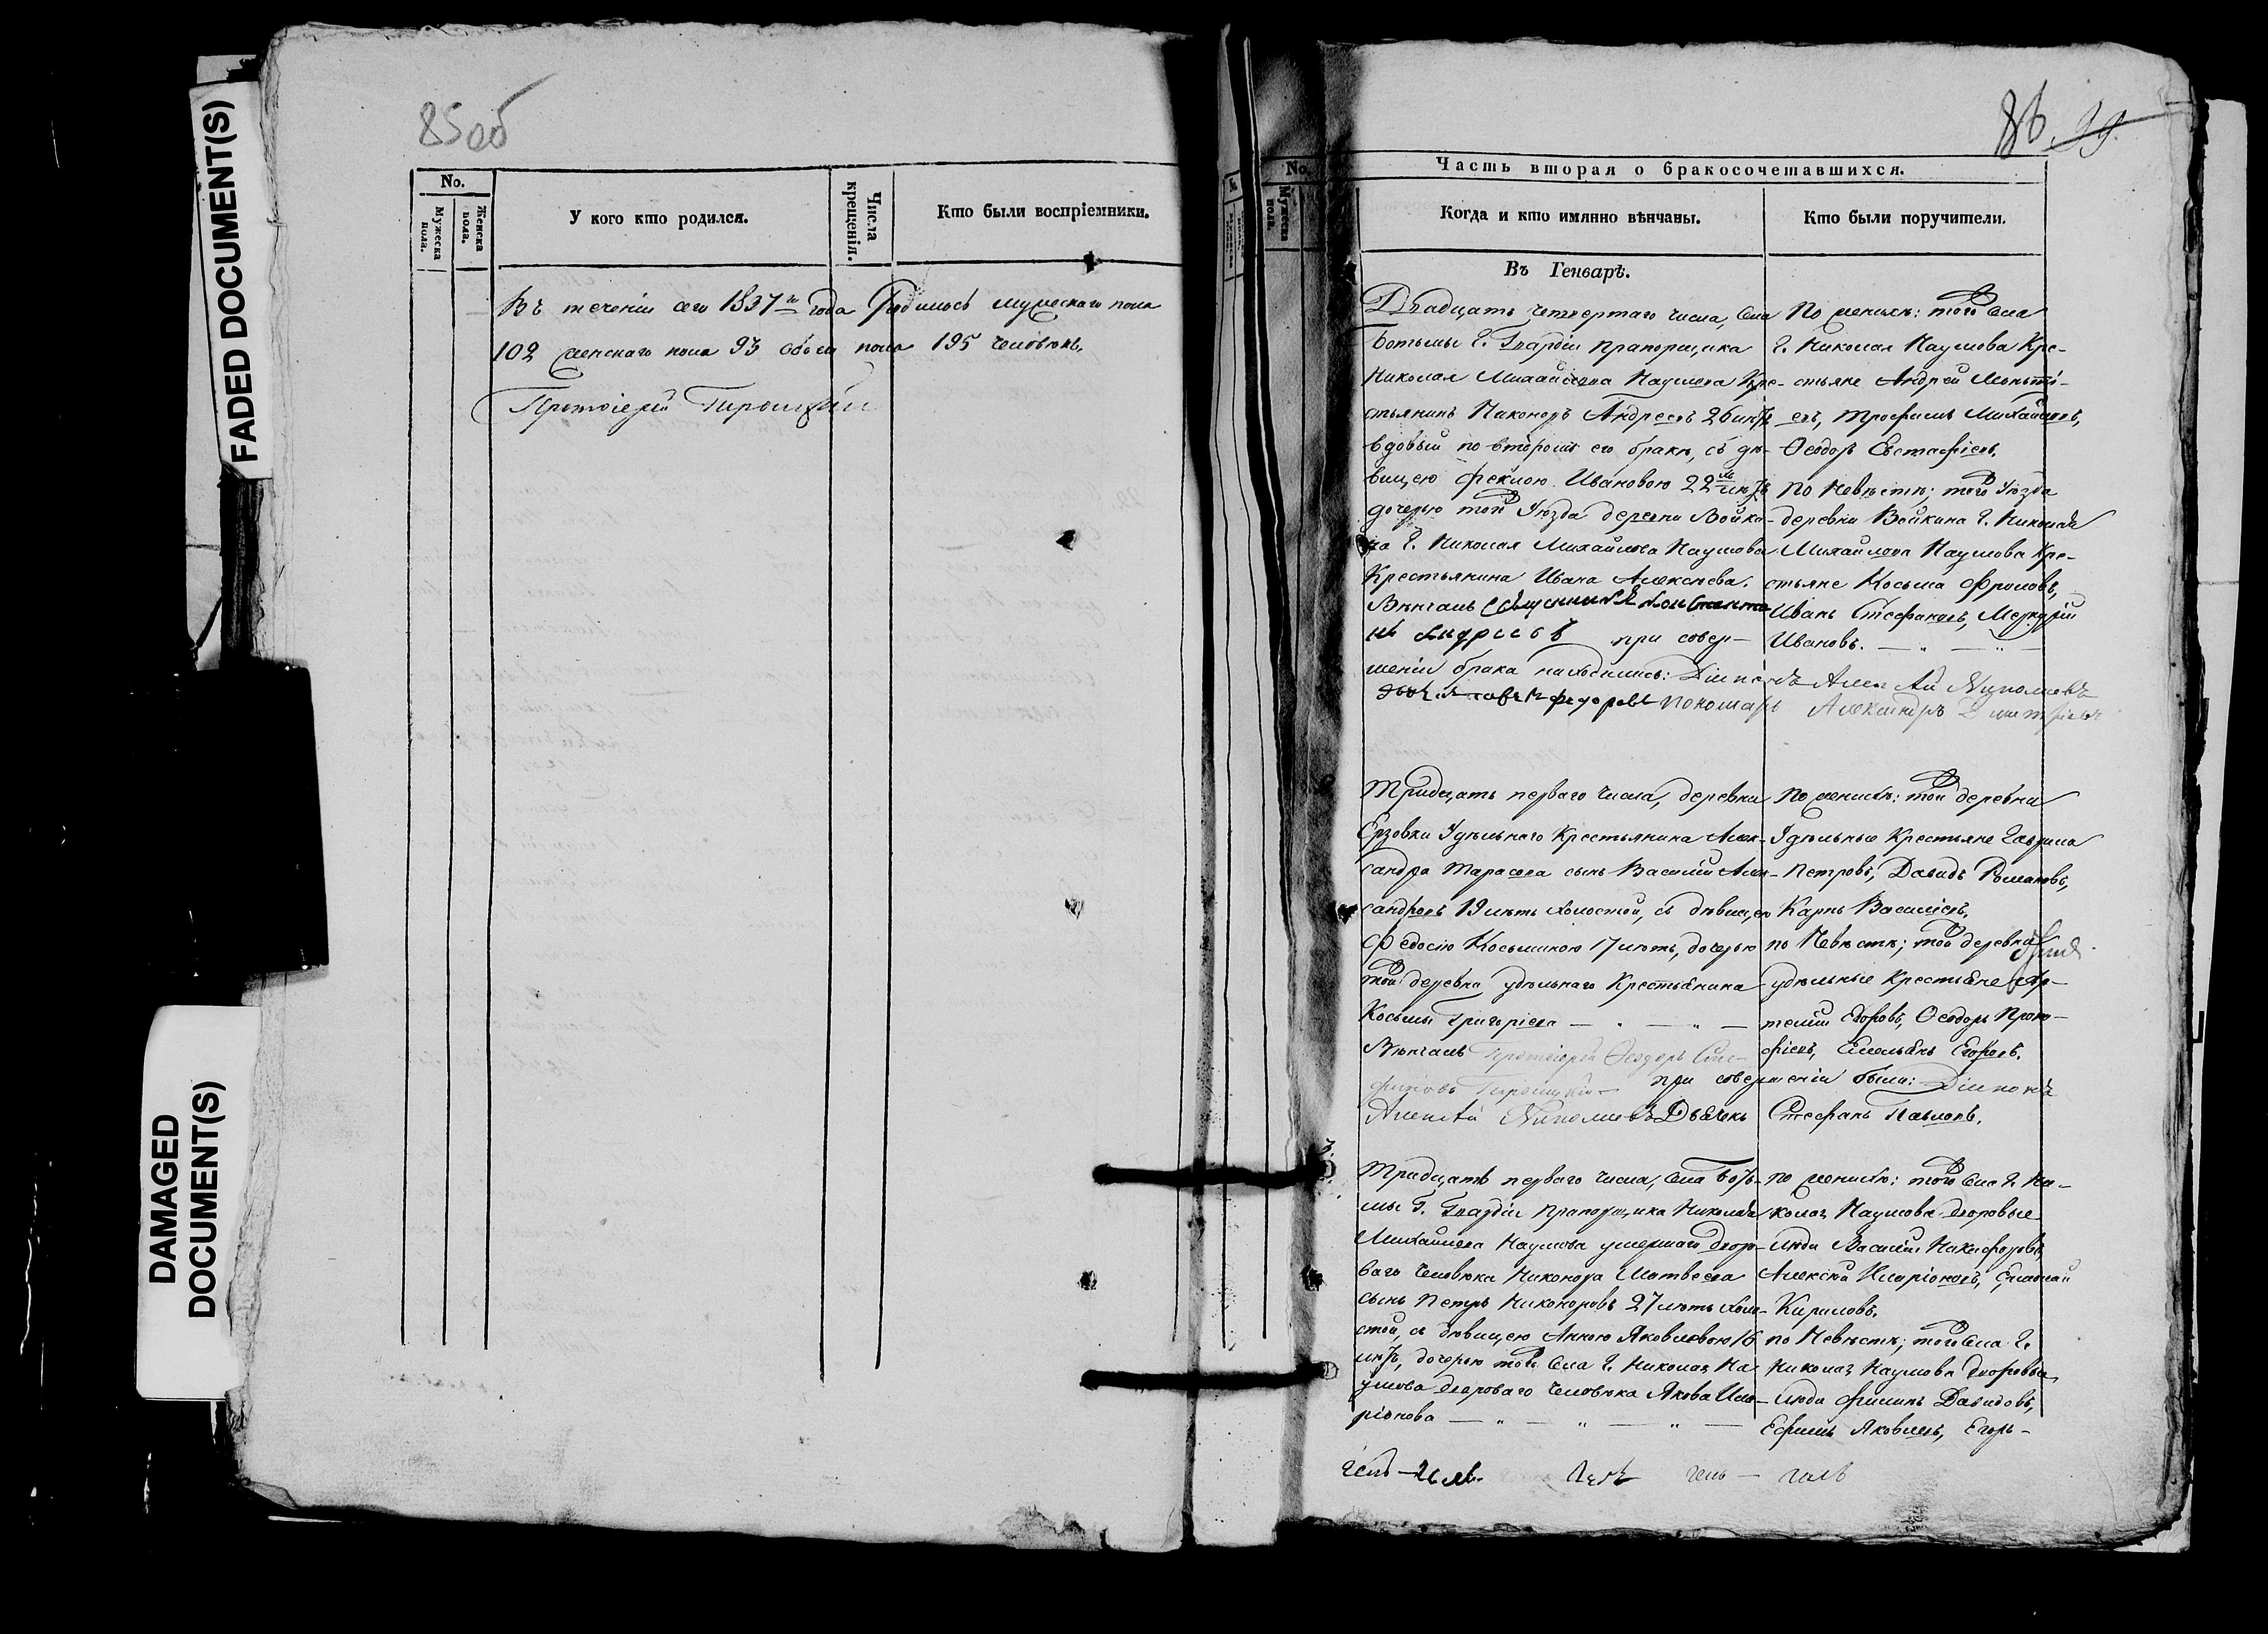 FADED DOCUMENT(S)
DAMAGED
DOCUMENT(S)
85об
No.
Мужеска пола.
Женска пола.
У кого кто родился.
Числа крещенія.
Кто были воспріемники.
Въ теченіи сего 1837го года Родилось мужескаго пола
102 женскаго пола 93 обоего пола 195 человѣкъ.
Протоіерей
86. 99.
No.
Мужеска пола.
Часть вторая о бракосочетавшихся.
Когда и кто имянно вѣнчаны.
Кто были поручители.
Въ Генварѣ.
Двадцать четвертаго числа, села
Ботьмы Г. Гвардіи Прапорщика
Николая Михайлова Наумова Кре-
стьянинъ Никоноръ Андреевъ 26 лѣтъ
вдовый по второмъ его бракѣ, съ дѣ-
вицею Феклою Ивановою 22 лѣтъ
дочерью того Уѣзда деревни Войки-
на Г. Николая Михайлова Наумова
Крестьянина Ивана Алексѣева.
Вѣнчалъ Священникъ Константи
нъ Андреевъ при совер-
шеніи брака находились: Діаконъ Алексѣй Николаевъ
Федоровъ Пономарь Александръ Дмитріевъ
По женихѣ: того села
Г. Николая Наумова Кре-
стьяне Андрей
евъ, Трофимъ Михайловъ,
Ѳеодоръ Евстафіевъ.
По Невѣстѣ; того Уѣзда
деревни Войкина Г. Николая
Михайлова Наумова Кре-
стьяне Косьма Фроловъ,
Иванъ Стефановъ, Меркурій
Ивановъ.
Тридцать перваго числа, деревни
Ерзовки Удѣльнаго Крестьянина Алек-
сандра Тарасова сынъ Василій Алек-
сандровъ 19 лѣтъ холостой, съ дѣвицею
Федосію Косьминою 17 лѣтъ, дочерью
той деревни удѣльнаго Крестьянина
Косьмы Григоріева
Вѣнчалъ Протоіерей Ѳеодоръ Сте-
фановъ при совершеніи были: Діаконъ
Алексѣй Николаевъ Дьячекъ Стефанъ Павловъ.
По женихѣ: той деревни
Удѣльные Крестьяне Гаврила
Петровъ, Давидъ Романовъ,
Карпъ Василіевъ.
по Невѣстѣ; той деревни
удѣльные Крестьяне Ар-
темій Егоровъ, Ѳеодоръ Проко-
фіевъ, Емельянъ Егоровъ.
Тридцать перваго числа, села Боть-
мы Г. Гвардіи Прапорщика Николая
Михайлова Наумова умершаго дворо-
ваго человѣка Никонора Матвеева
сынъ Петръ Никоноровъ 27 лѣтъ холо-
стой, съ дѣвицею Анною Яковлевою 16
лѣтъ, дочерью того села Г. Николая На-
умова двороваго человѣка Якова Ила-
ріонова
по женихѣ: того села Г. Ни-
колая Наумова дворовые
люди Василій Никифоровъ,
Алексѣй Иларіоновъ,
Кириловъ.
по Невѣстѣ; того села Г.
Николая Наумова дворовые
люди Филипъ Давидовъ,
Ефимъ Яковлевъ, Егоръ